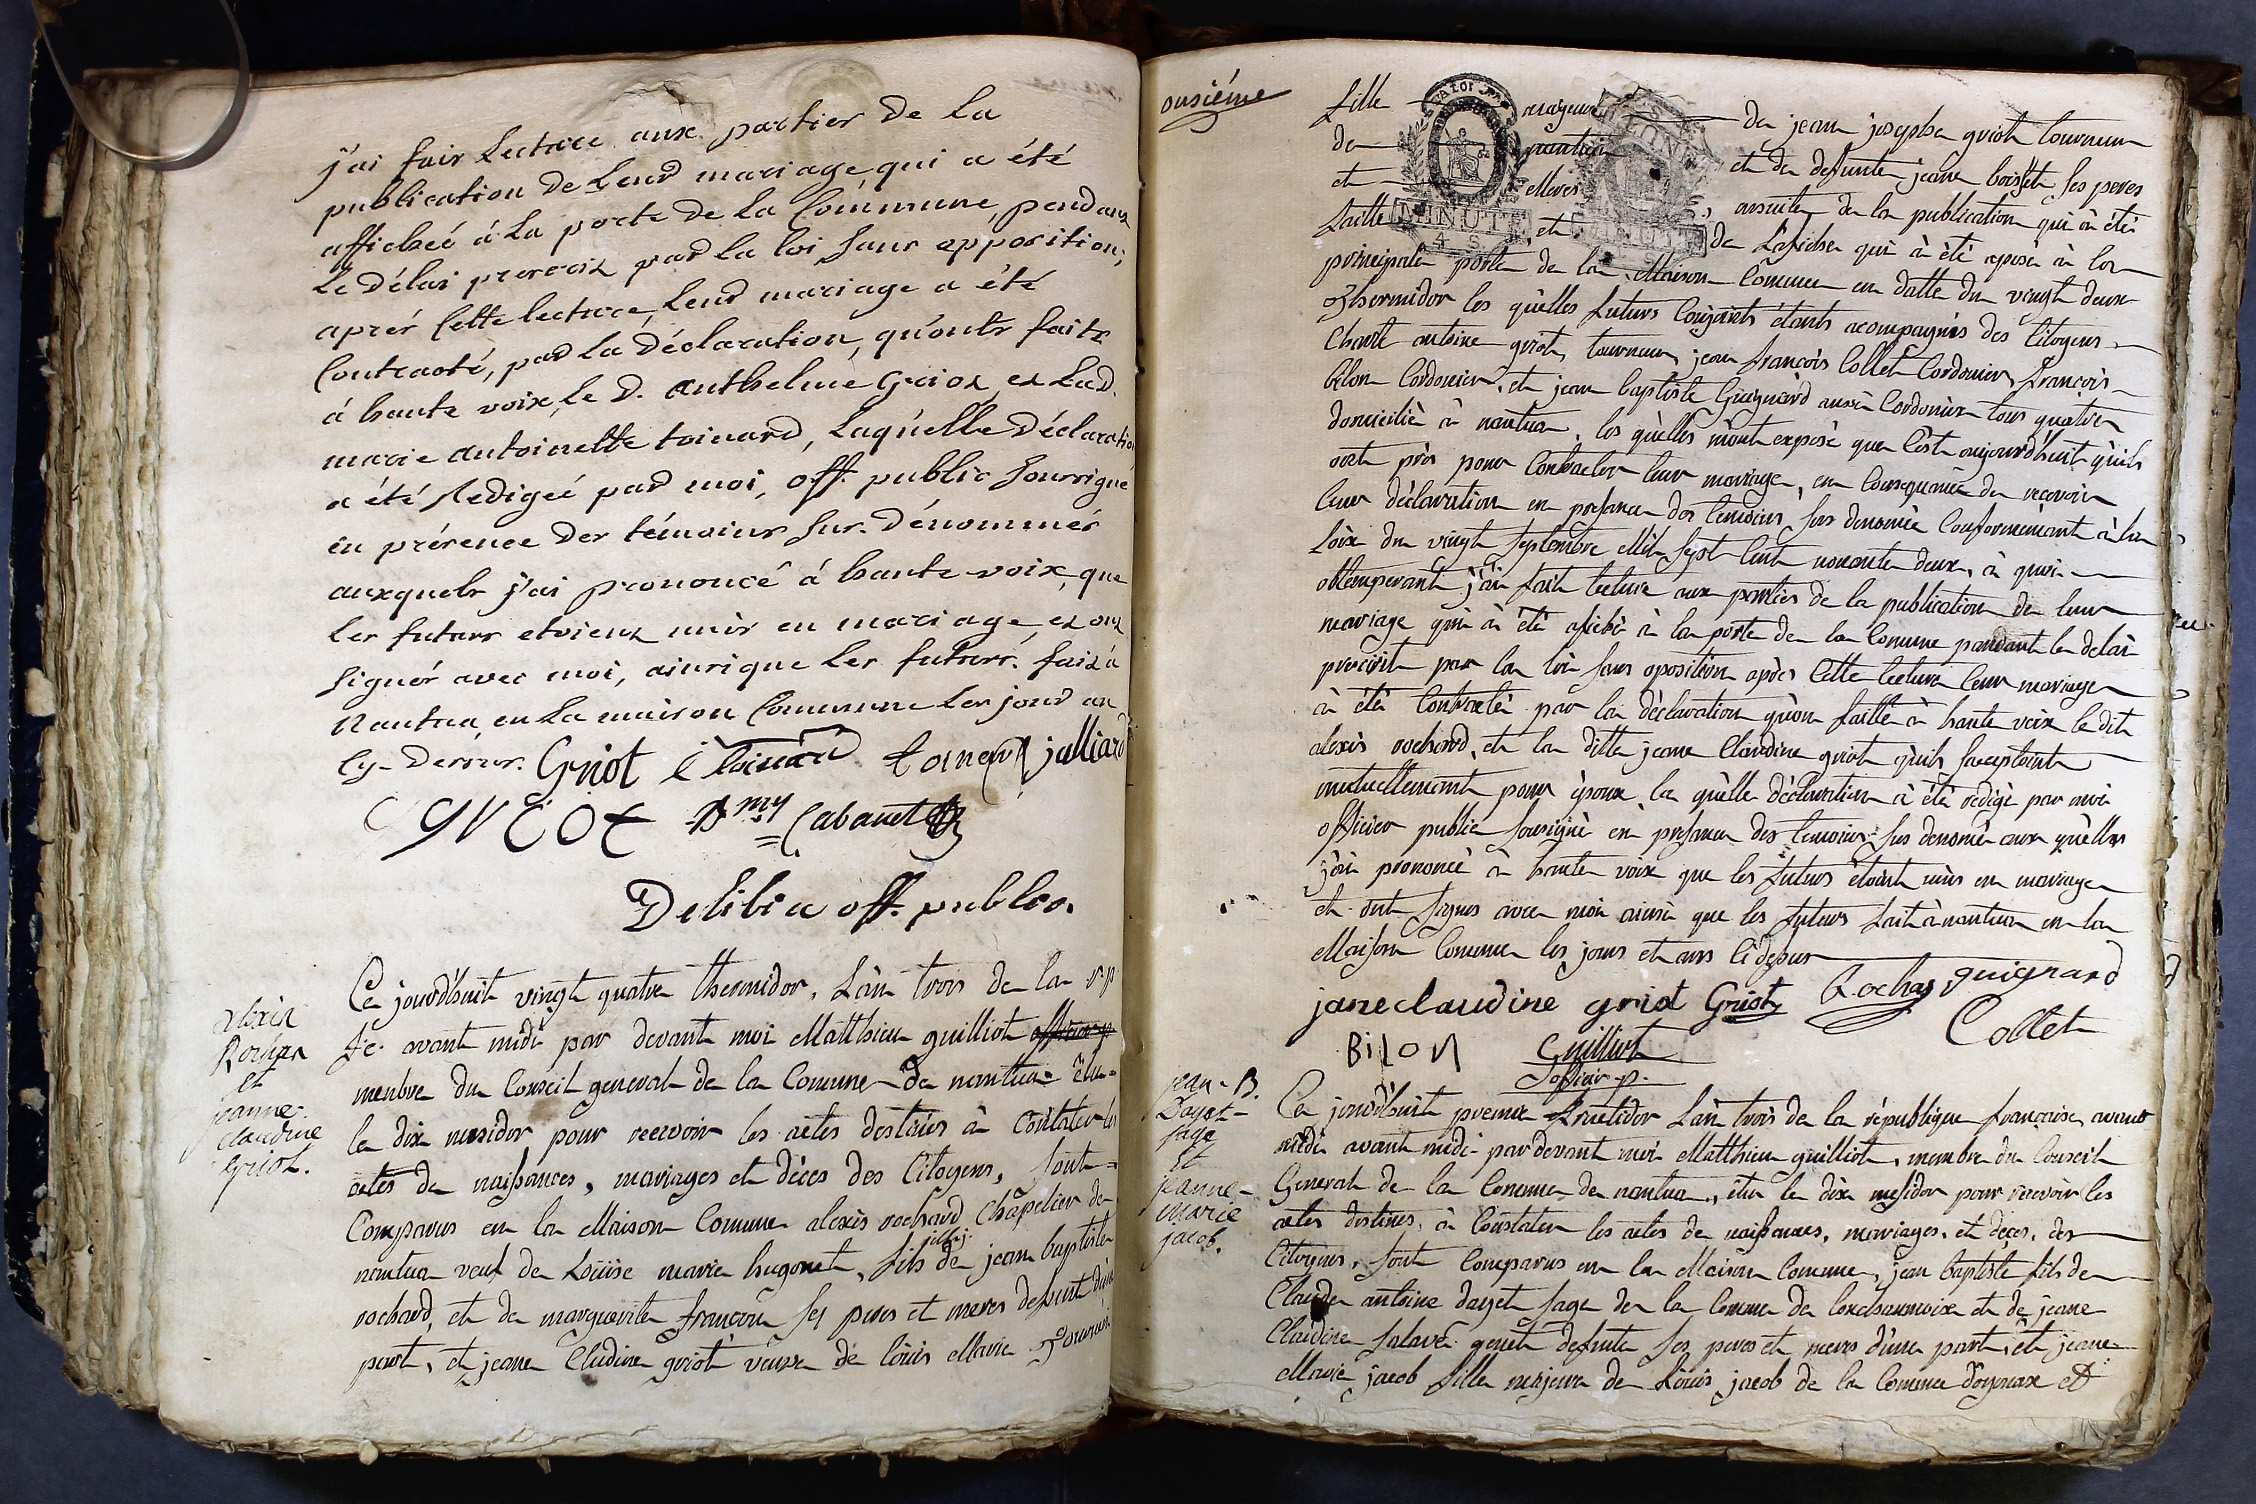 j'ai fair Lectrice aux partier de La
publication de Leur mariage qui a été
affichéé á La porte de La Commune, pendant
Le délai prercrit par La loi, sanr opporition;
aprér Cette lecture, Leur mariage a été
Contracté, par La déclaration, qu'ontr faite
á haute voix, Le D. anthelme Griot, et Lad.
marie antoinette toinard, Laquélle Déclaration
a été Redigéé par moi, off. public soussigné
en présence der témoinr sur. Dénommér
auxquelr j'ai prononcé á haute voix, que
Ler futurr etoient unir en mariage, et ont
signér avec moi, ainrique Ler futurr. fait á
Nantua, en La mairon Commune Ler jour an
Cy-Derrur. Griot toinard julliard
griot Rmy Cabanet
Delilia off. public.
alexis
Rochar
et
jeanne
claudine
Griot.
Ce jourd'huit vingt quatre thermidor, L'àn trois de la rp
f.e. avant midi par devant moi Matthieu guilliot
menbre du Conseil general de la Comune de nantua élu
le dix mesidor pour recevoir les actes destinés à Constater les
actes de naissances, mariages et déces des Citoyens, sont
Comparus en la Maison Comune alexis rochard chapelier de
nantua veuf de Loüise marie hugonet, fils de jean baptiste
rochard, et de marguerite françon ses peres et meres defunt d'une
part, et jeane Cludine griot veuve de loüis Marie
onsiéme
fille majeure de jean josephe griot tourneur
de nantua et de defunte jeane boisset ses peres
et Meres, ensuite de la publication qui à été
faitte et de L'afiche qui à été aposé à la
principale porte de la Maison Comune en datte du vingt deux
thermidor les quèlles futurs Conjoints étants acompagnés des Citoyens
Charle antoine griot, tourneur, jean françois Collet Cordonier, françois
bilon Cordonier, et jean baptiste Guignard aussi Cordonier tous quatre
domicilié à nantua, les quèlles m'ont exposé que C'est aujourd'huit qu'ils
sont près pour Contracter leur mariage, en Conséquence de recevoir
leur déclaration en presance des temoins sus denomée Conformémant à la
Loix du vingt septembre Mil sept Cent nonante deux, à quoi
obtemperant j'ai fait lecture aux parties de la publication de leur
mariage qui à été afiché à la porte de la Comune pandant le delai
prescrit par la loi sans oposition après Cette lecture leur mariage
à été Contracté par la déclaration qu'on faitte à haute voix le dit
alexis rochard, et la ditte jeane Claudine griot qu'ils saceptoint
mutuellemant pour époux, la quèlle déclaration à été redigé par moi
officier public sousigné en presance des temoins sus denomé aux quèlles
j'ai prononcé à haute voix que les futurs étoint unis en mariage
et ont signés avec moi ainsi que les futurs fait à nantua en la
Maison Comune les jours et ans Ci desus
jane claudine griot Griot Rochas guignard
Collet
BiloN Guilliot
officier p.
jean-B.
Dayet-
sage
Et
jeanne-
marie
jacob.
Ce jourd'huit premier fructidor L'àn trois de la république française, avant
midi avant midi par devant moi Matthieu guilliot, membre du Conseil
General de la Comune de nantua, élu le dix mesidor pour recevoir les
actes destinés à Constater les actes de naissances, mariages, et déces, des
Citoyens, sont Comparus en la Maison Comune, jean baptiste fils de
Claude antoine dayet sage de la Comune de lonchaumoix et de jeane
Claudine salave genet defunte ses peres et meres d'une part, et jeane
Marie jacob fille majeure de Loüis jacob de la Comune d'oyonax et